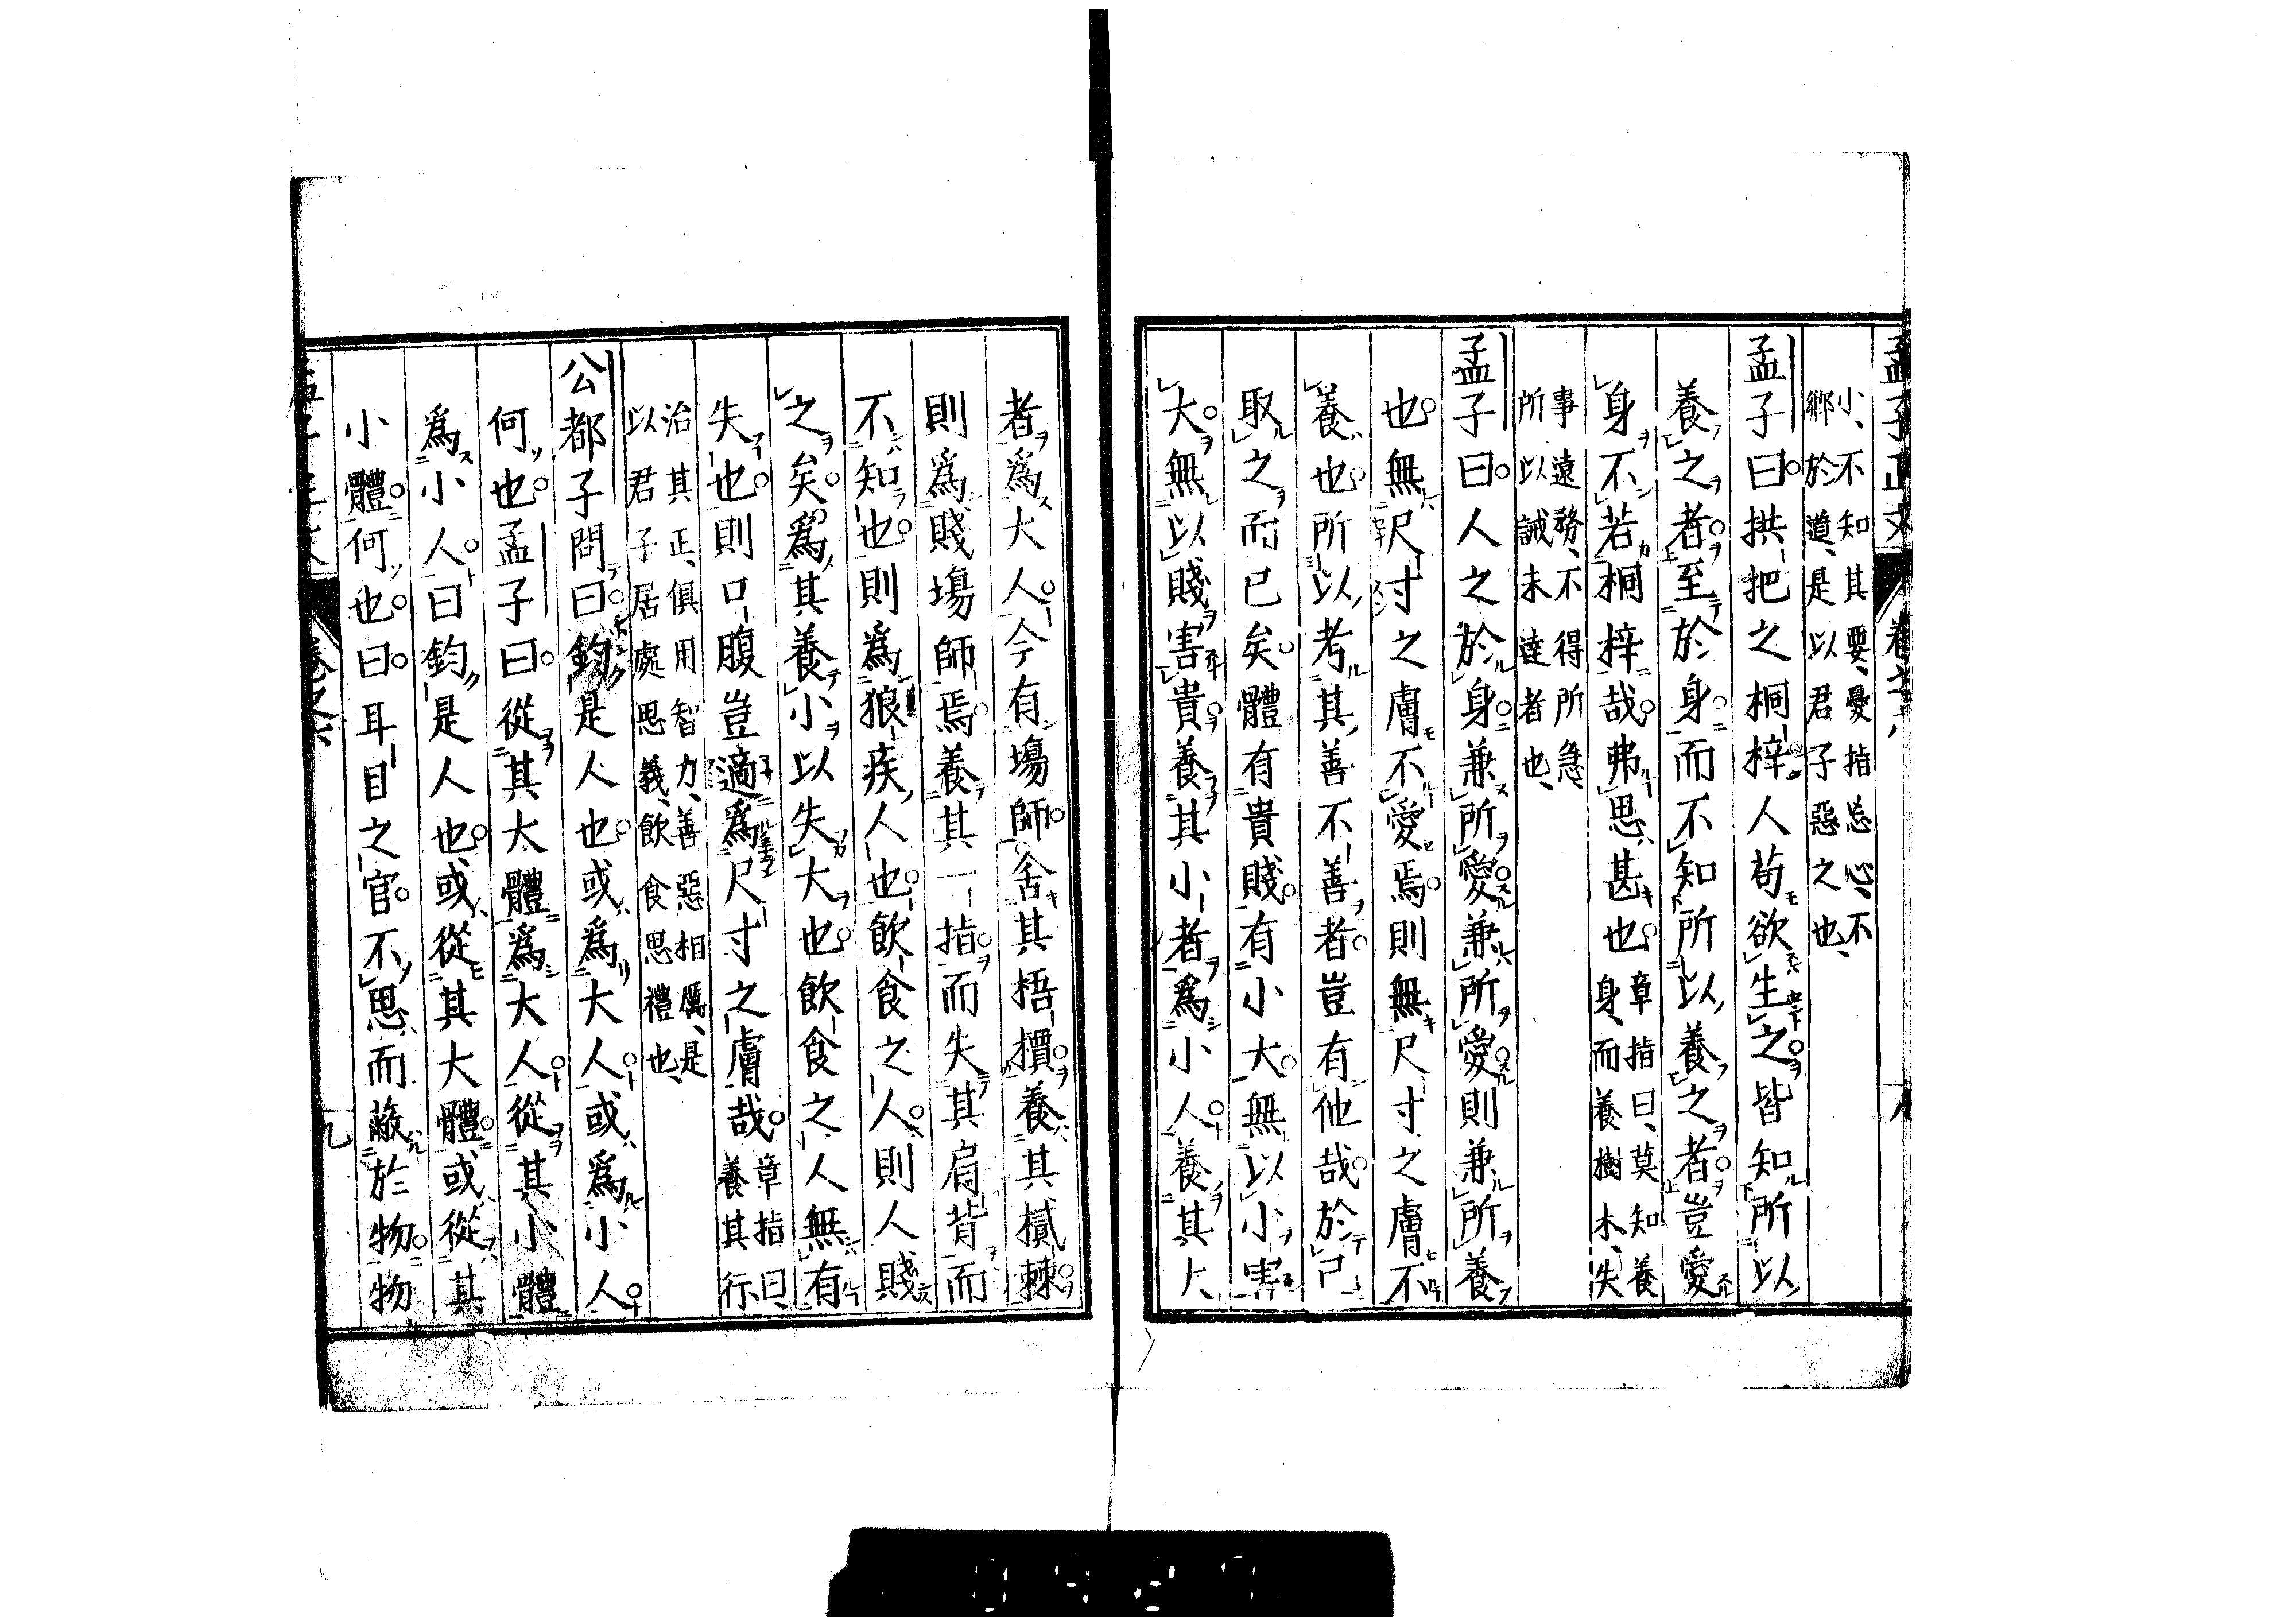 孟子正文　卷之六
小、不知其要、憂指忘心、不
鄉於道、是以君子惡之也、
孟子曰拱把之桐梓人苟欲生之皆知所以
養之者至於身而不知所以養之者豈愛
身不若桐梓哉弗思甚也章指曰、莫知養
身、而養樹木、失
事遠務、不得所急
所以誡未達者也、
孟子曰人之於身兼所愛兼所愛則兼所養
也無尺寸之膚不愛焉則無尺寸之膚不
養也所以考其善不善者豈有他哉於己
取之而已矣體有貴賤有小大無以小害
大無以賤害貴養其小者爲小人養其大
者爲大人今有場師舍其梧檟養其樲棘
則爲賤場師焉養其一指而失其肩背而
不知也則爲狼疾人也飲食之人則人賤
之矣爲其養小以失大也飲食之人無有
失也則口腹豈適爲尺寸之膚哉章指曰、
養其行
治其正、俱用智力、善惡相厲、是
以君子居處思義、飲食思禮也、
公都子問曰鈞是人也或爲大人或爲小人
何也孟子曰從其大體爲大人從其小體
爲小人曰鈞是人也或從其大體或從其
小體何也曰耳目之官不思而蔽於物物
卷之六
九